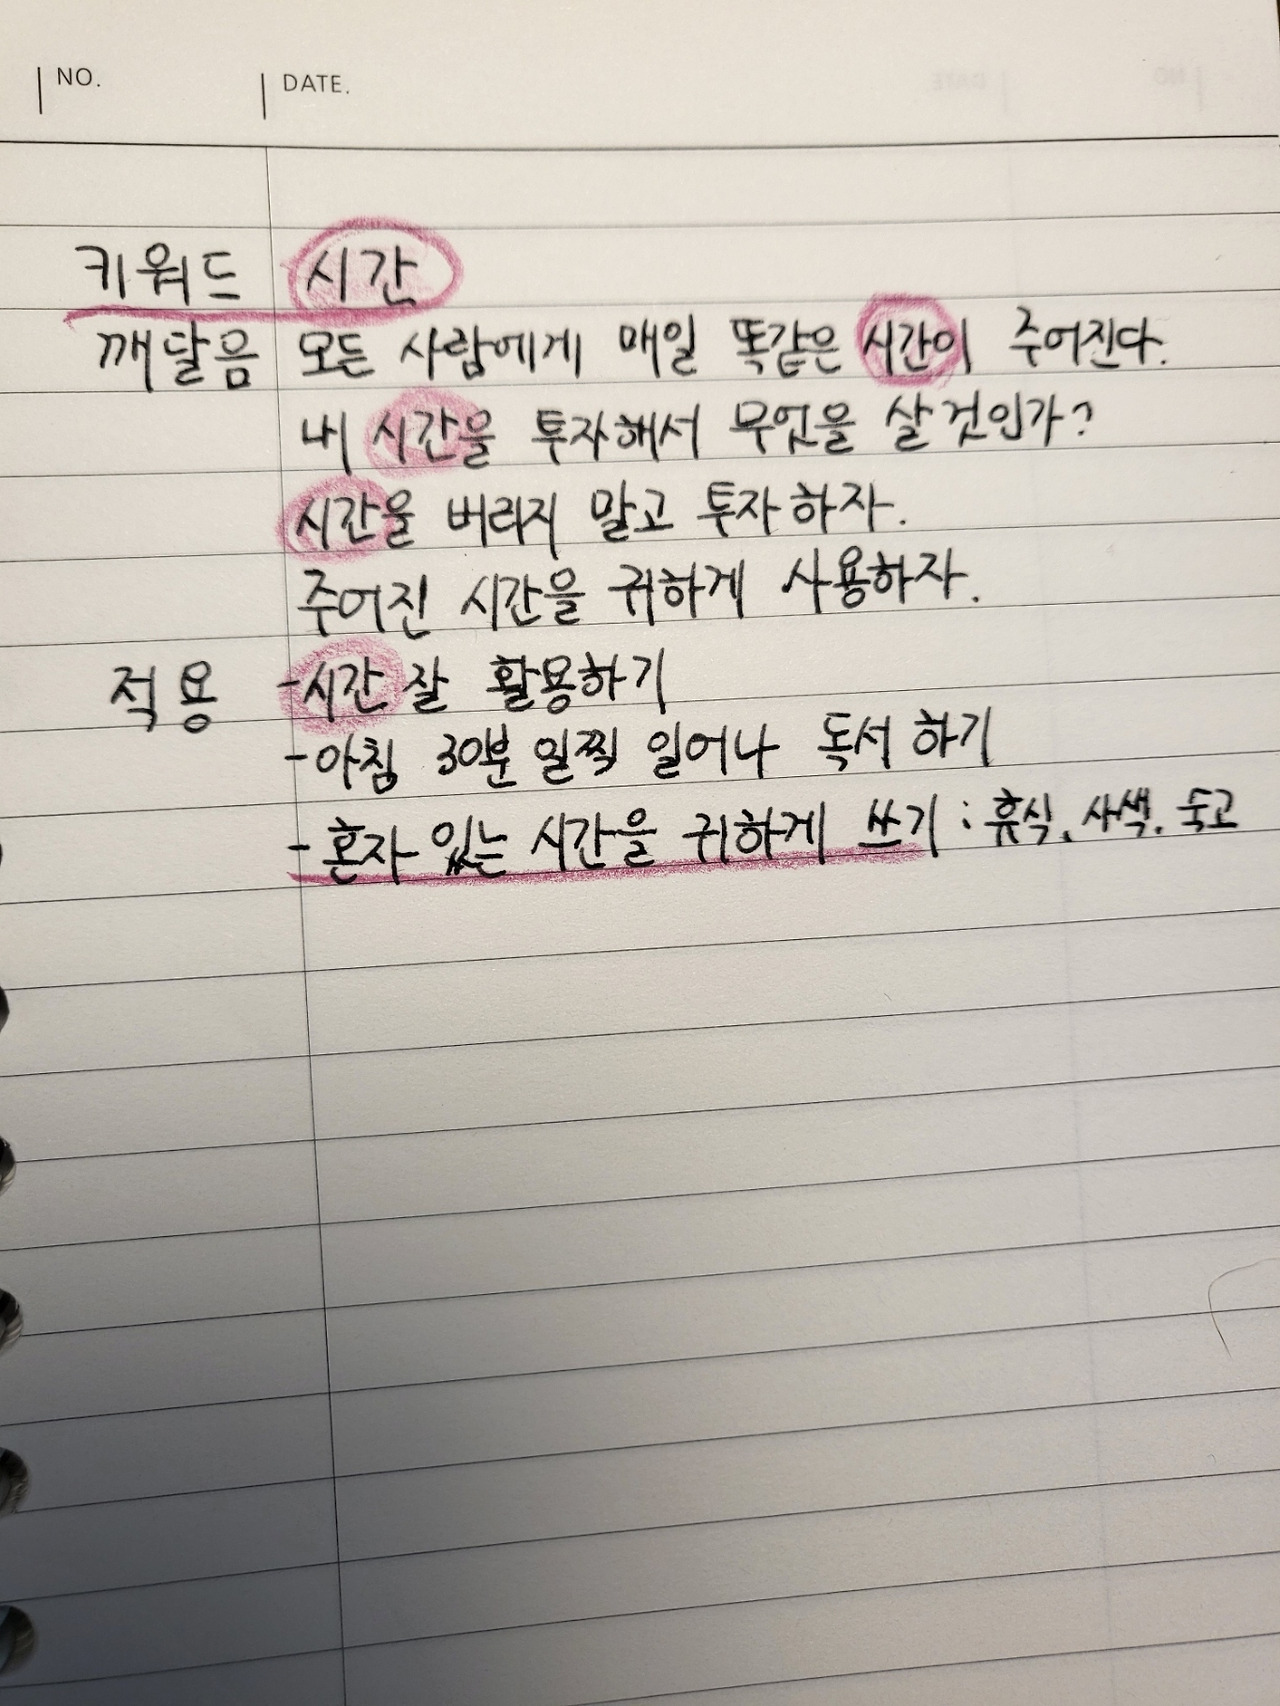 NO. DATE.
키워드 시간
깨달음 모든 사람에게 매일 똑같은 시간이 주어진다.
내 시간을 투자해서 무엇을 살 것인가?
시간을 버리지 말고 투자하자.
주어진 시간을 귀하게 사용하자.
적용 -시간 잘 활용하기
-아침 30분 일찍 일어나 독서 하기
-혼자 있는 시간을 귀하게 쓰기 : 휴식. 사색. 숙고